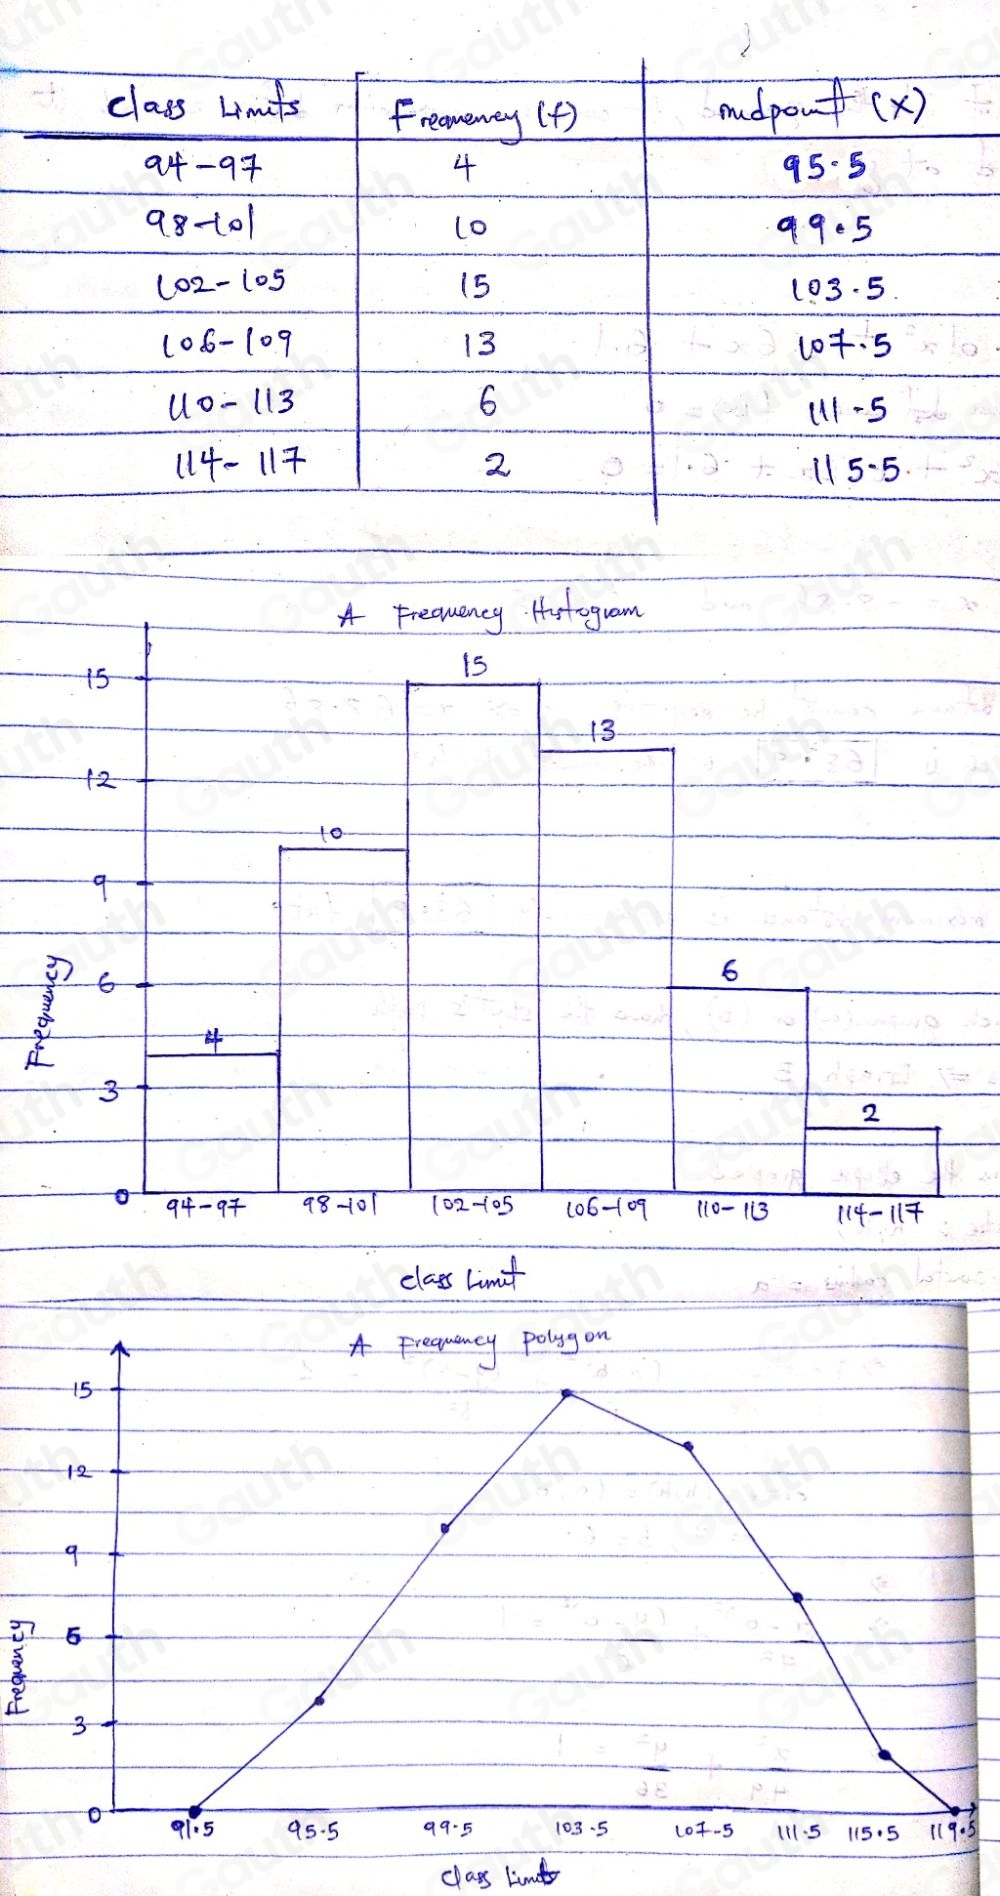 Class Limits Frequency (f) midpoint (X)
94-97 4 95.5
98-101 10 99.5
102-105 15 103.5
106-109 13 107.5
110-113 6 111-5
114-117 2 115-5
A Frequency Histogram
15
12
9
6
3
0
Frequency
4
10
15
13
6
2
94-97 98-101 102-105 106-109 110-113 114-117
class Limit
A Frequency polygon
15
12
9
6
3
0
Frequency
91.5 95-5 99-5 103-5 107-5 111-5 115.5 119.5
Class Limits
Gauth